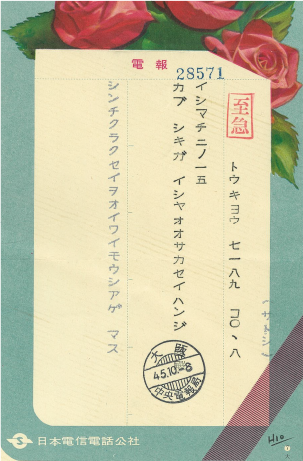 電報
28571
至急
トウキヨウ 七一八九 コ〇、八
イシマチニノ一五
カブ シキガ イシヤオオサカセイハンジ
シンチクラクセイヲオイワイモウシアゲ マス
大阪
45.10.-8
中央電報局
日本電信電話公社
H10